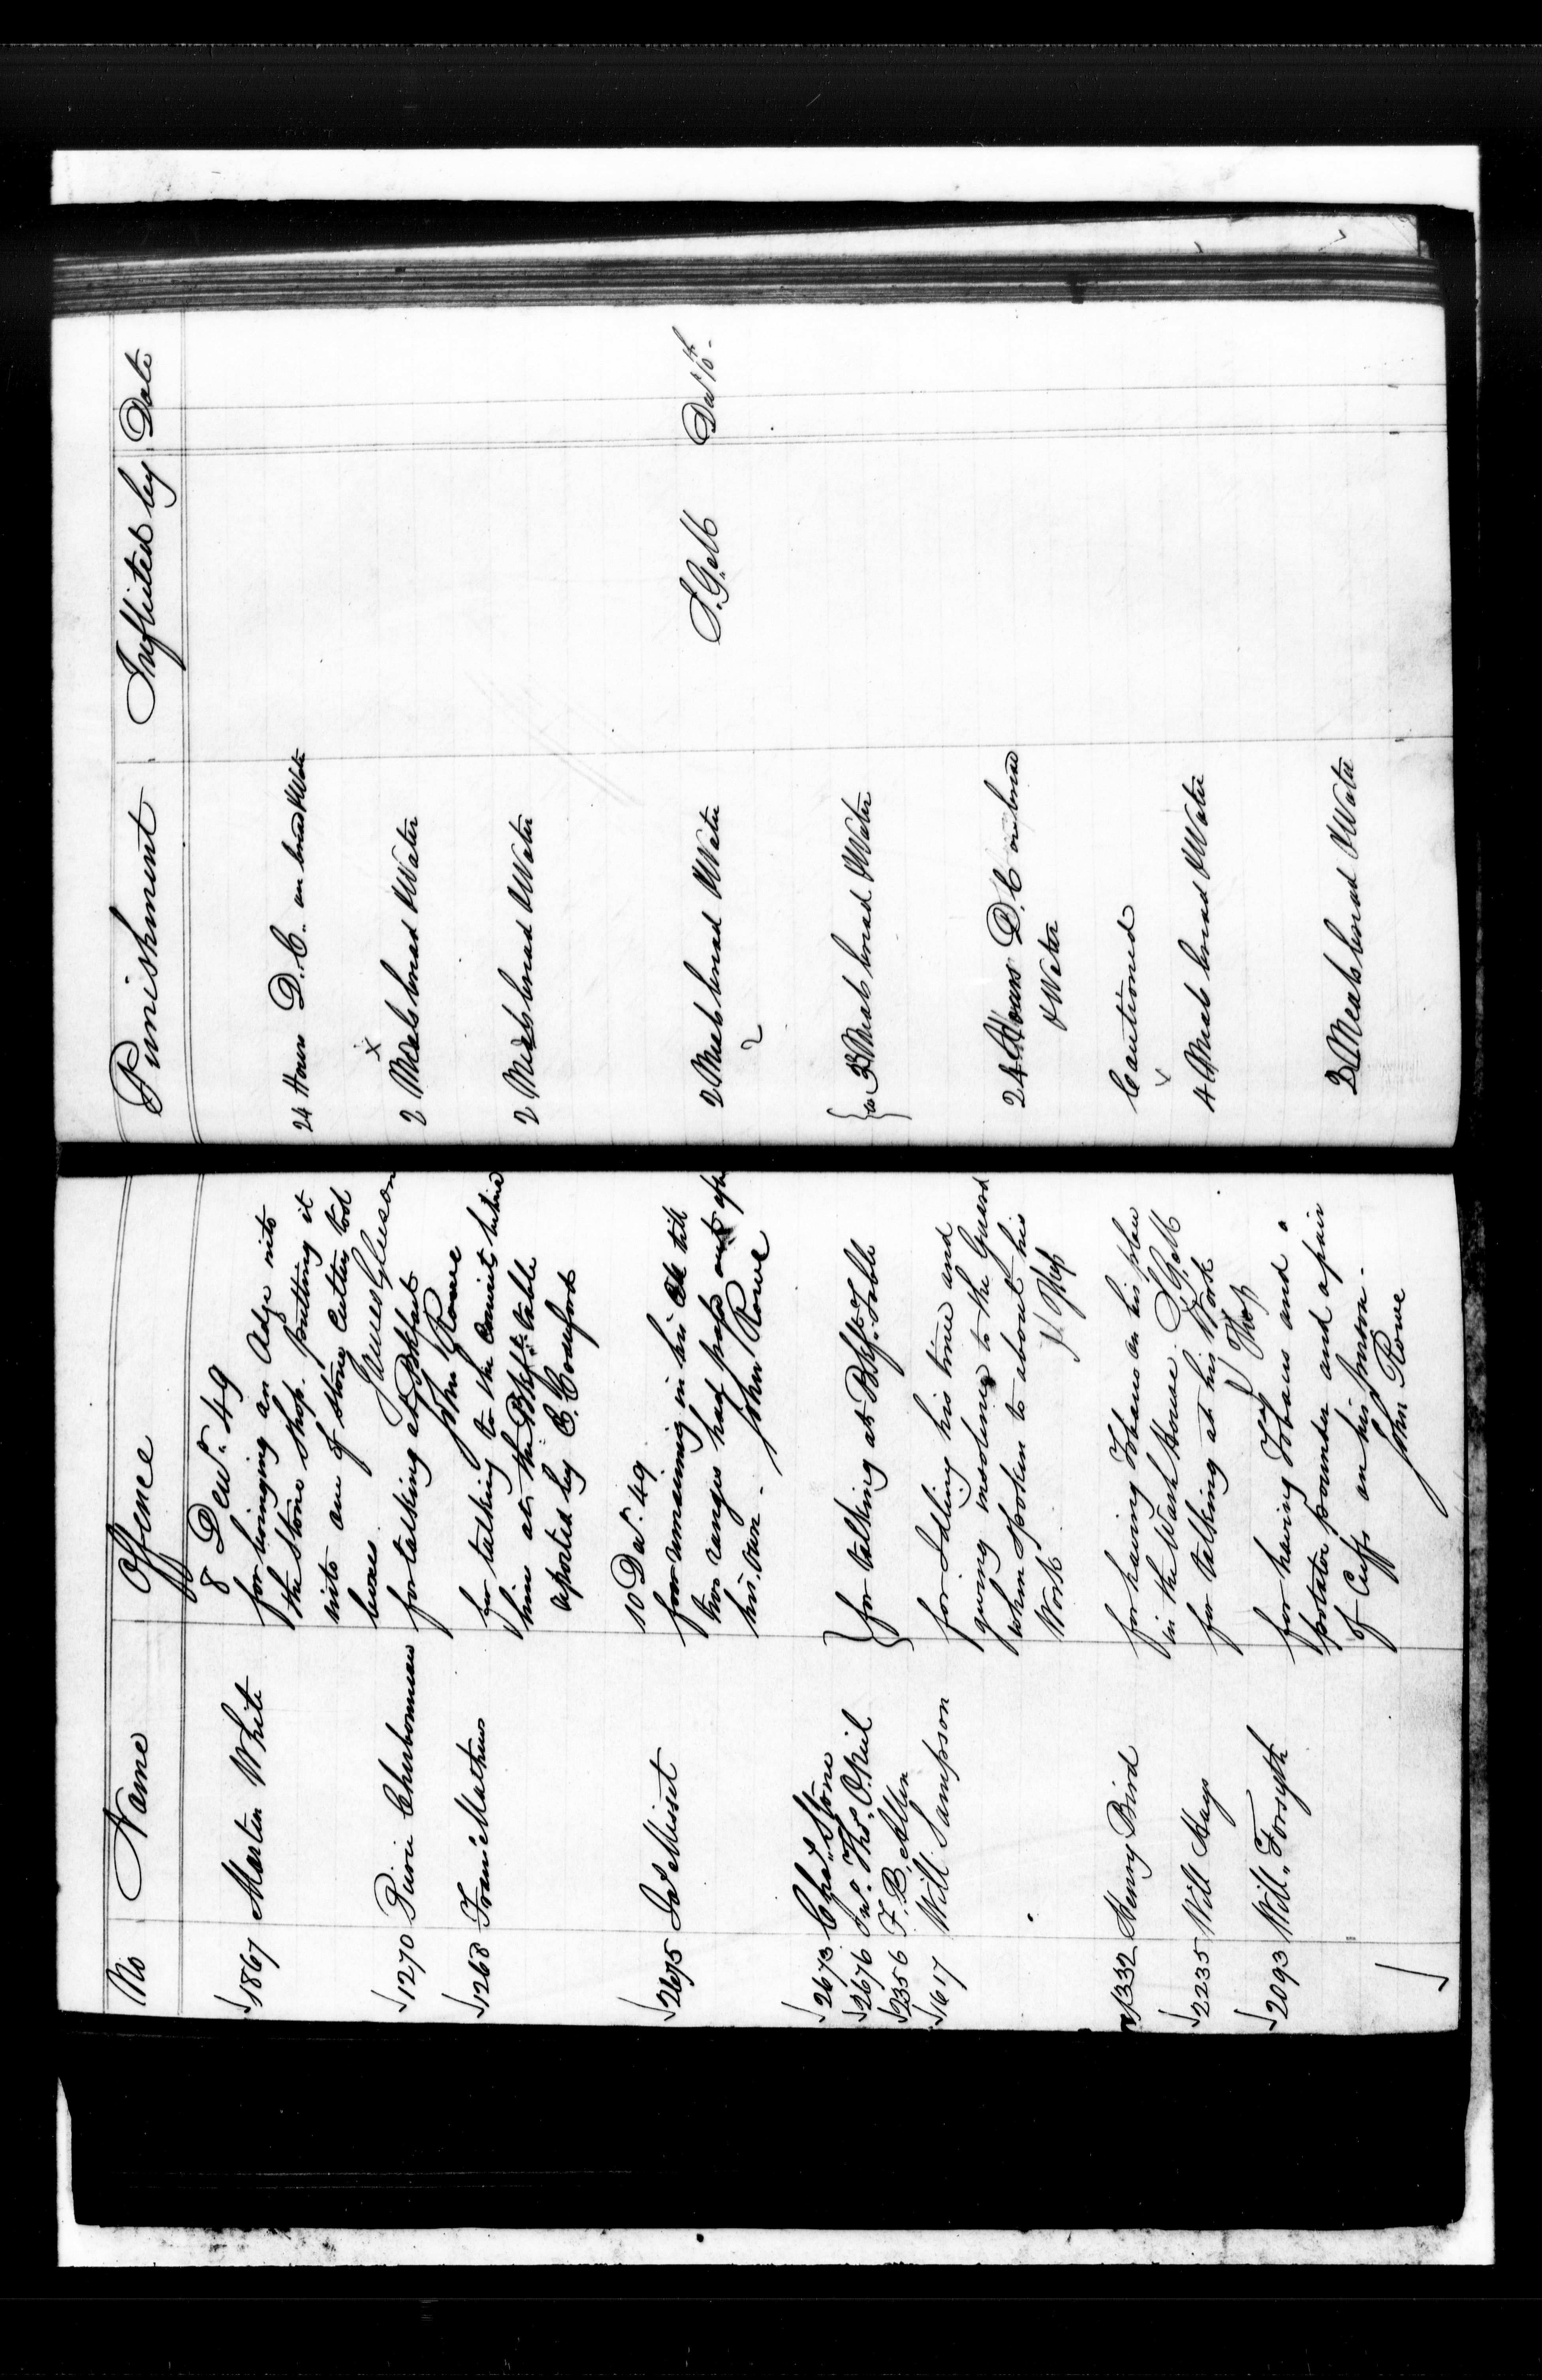 No Name Offence Punishment Inflicted by Date
8 Decr. 49
1867 Martin White for bringing an Adge into 24 Hours D.C. on bread & Water
the Stone Shop. putting it
into one of Stone Cutters tool
boxes James Gleeson
1270 Pierre Charbonneau for talking at Bkfast 2 Meals bread & Water
John Rowe
1268 Frans Mathews for talking to the Convict behind 2 Meals bread & Water
him at the Bkft. table
reported by C. Crawford
10 Dec. 49
2675 Jas Misset for remaining in his till 2 Meals bread & Water S. Gell Decr 10th
two ranges had pass out after
his own - John Rowe
2673 Chas. Stone
2676 Jno. Thos. O.Neil for talking at Bkfst. Table 3 Meals bread & Water
2356 F. B. Allen
1617 Will Sampson for Idling his time and
giving insolence to the Guard 24 Hours D.C on bread
when spoken to about his & Water
Work
1332 Henry Bird for having Tobacco in his place Cautioned
in the Wash House S. Gell
2235 Will Hays for talking at his Work 4 Meals bread & Water
2093 Will. Forsyth for having Tobacco and a
potatoe pounder and a pair 3 Meals bread & Water
of Cuffs on his person -
John Rowe